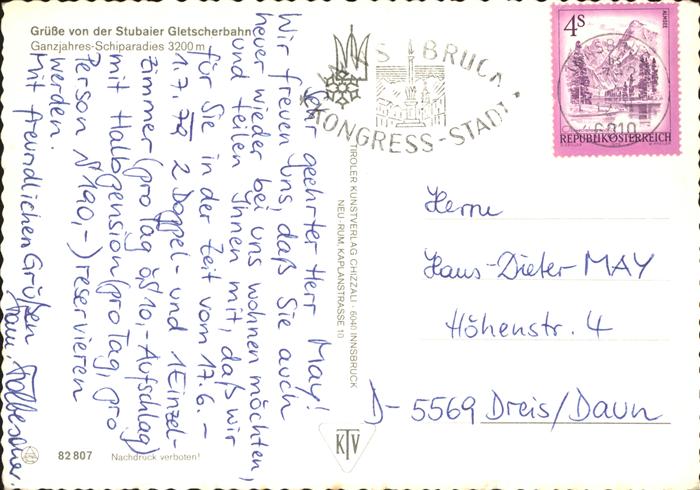 Grüße von der Stubaier Gletscherbahn
Ganzjahres-Schiparadies 3200 m
Sehr geehrter Herr May!
Wir freuen uns, daß Sie auch
heuer wieder bei uns wohnen möchten,
und teilen Ihnen mit, daß wir
für Sie in der Zeit vom 17.6. –
1.7. 2 Doppel- und 1 Einzel-
zimmer (pro Tag öS 10,- Aufschlag)
mit Halbpension (pro Tag, pro
Person S 190,-) reservieren
werden.
Mit freundlichen Grüßen
82807 Nachdruck verboten!
TIROLER KUNSTVERLAG CHIZZALI · 6040 INNSBRUCK
NEU-RUM, KAPLANSTRASSE 10
KTV
INNSBRUCK
KONGRESS-STADT
4S
ALMSEE
REPUBLIK ÖSTERREICH
6010
Herrn
Hans-Dieter MAY
Höhenstr. 4
D-5569 Dreis/Daun